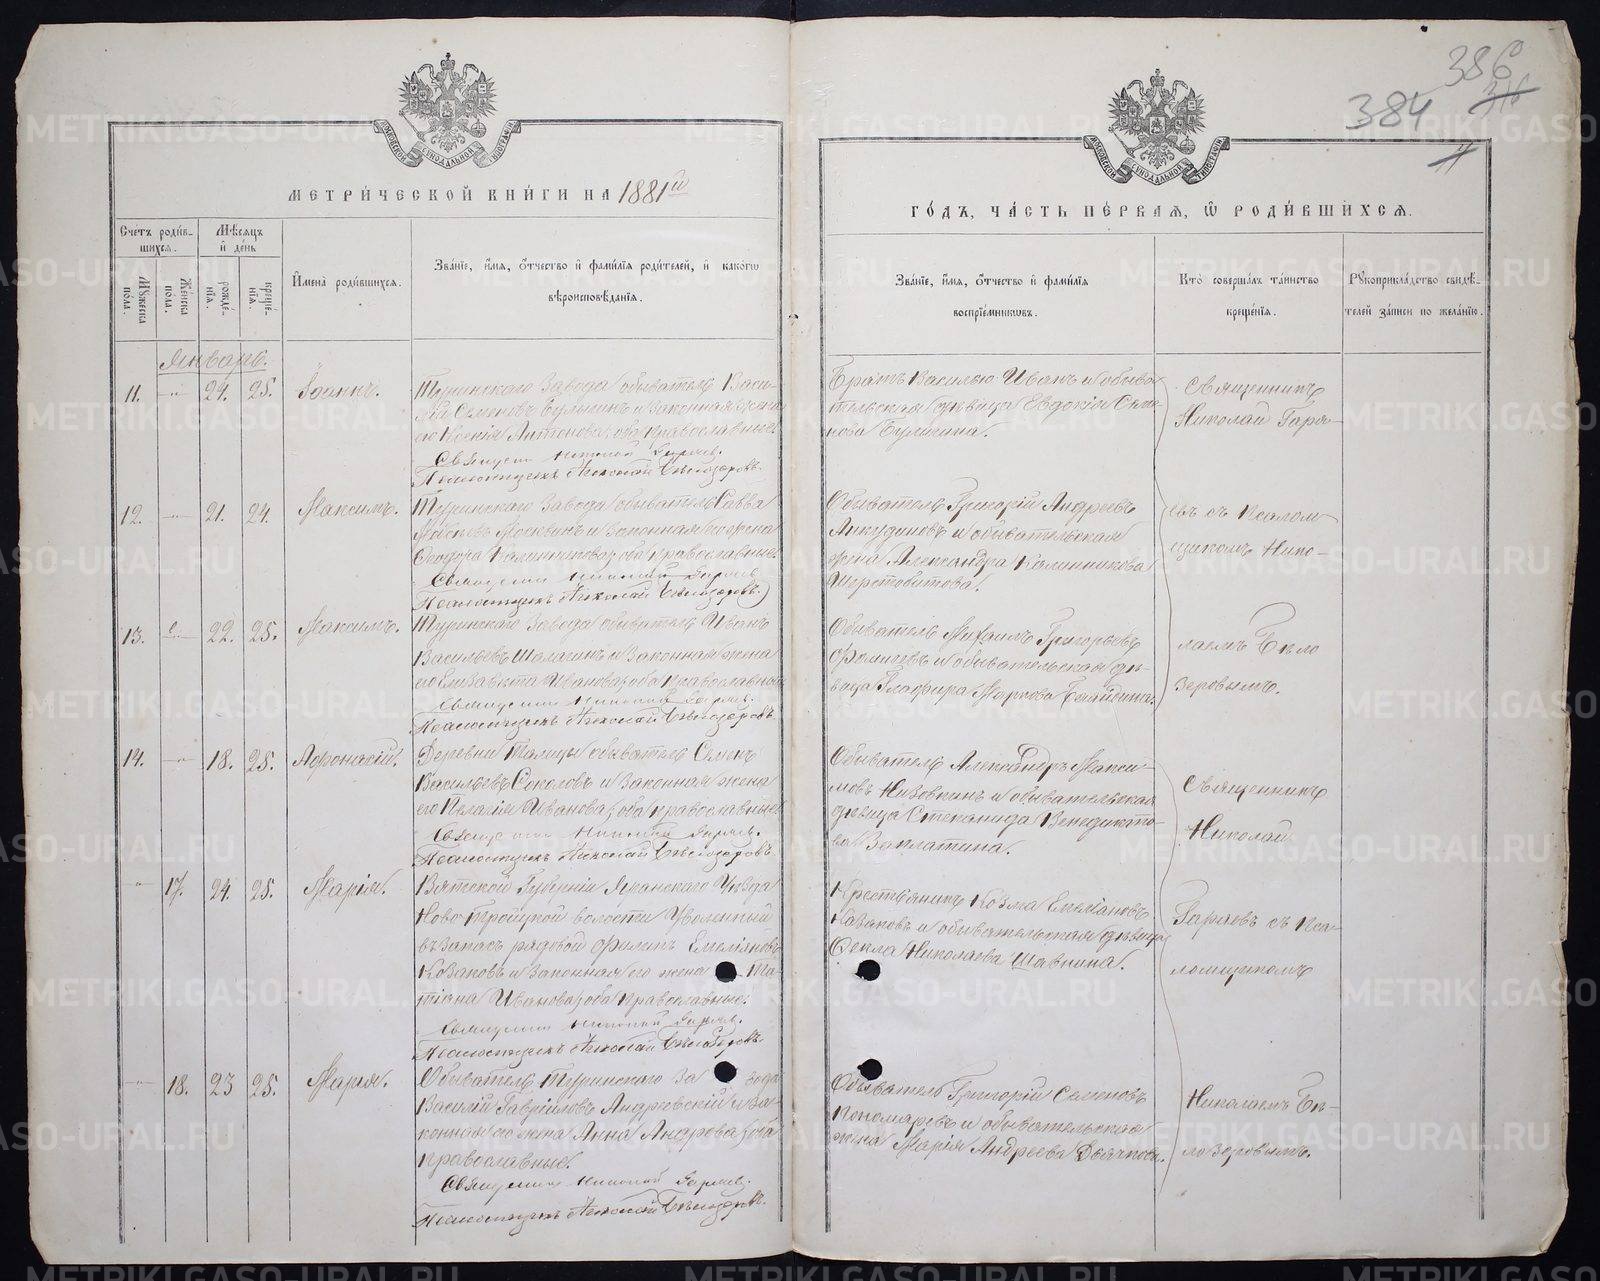 386
384
МЕТРИ́ЧЕСКОЙ КНИ́ГИ НА 1881й
ГО́ДЪ, ЧА́СТЬ ПЕ́РВАЯ, Ѡ РОДИ́ВШИХСЯ.
Сче́тъ роди́в-
шихся.
Му́жеска
по́ла.
Же́нска
по́ла.
Мѣ́сяцъ
и де́нь
рожде́-
нїя.
креще́-
нїя.
Имена̀ роди́вшихся.
Зва́нїе, и́мя, о́тчество и фами́лїя роди́телей, и како́гѡ
вѣроисповѣ́данїя.
Зва́нїе, и́мя, о́тчество и фами́лїя
воспрїе́мникѡвъ.
Кто̀ соверша́лъ та́инство
креще́нїя.
Рукоприкла́дство свидѣ́-
телей за́писи по жела́нїю.
Январь.
11. " 24. 25. Іоаннъ.
Туринскаго Завода обыватель Васи-
лій Семеновъ Булыгинъ и законная жена
его Ксенія Антонова, оба православные.
Священникъ Николай Гаряев.
Псаломщикъ Николай Бѣлозеровъ.
Братъ Василью Иванъ и обыва-
тельская дѣвица Евдокія Семе-
нова Булыгина.
Священникъ
Николай Гаря-
12. " 21. 24. Максимъ.
Туринскаго Завода обыватель Савва
Москвинъ и законная его жена
Калинникова, оба православные.
Священникъ Николай Гаряев
Псаломщикъ Николай Бѣлозеровъ.
Обыватель Григорій Андреевъ
Анкудиновъ и обывательская
жена Александра Калинникова
Шерстобитова.
евъ съ Псалом-
щикомъ Нико-
13. " 22. 25. Максимъ.
Туринскаго Завода обыватель Иванъ
Васильевъ Шалагинъ и законная жена
его Елизавета Иванова, оба православные
Священникъ Николай Гаряев.
Псаломщикъ Николай Бѣлозеровъ.
Обыватель Михаилъ Григорьевъ
Фомичевъ и обывательская дѣ-
вица Глафира Маркова
лаемъ Бѣло
зеровымъ.
14. " 18. 25. Афонасій.
Деревни Талицы обыватель Семенъ
Васильевъ Соколовъ и законная жена
его Пелагія Иванова, оба православные
Священникъ Николай Гаряев.
Псаломщикъ Николай Бѣлозеровъ.
Обыватель Александръ Макси-
мовъ Низовкинъ и обывательская
дѣвица Степанида Венедикто-
ва Заплатина.
Священникъ
Николай
" 17. 24. 25. Марія.
Вятской Губерніи Яранскаго Уѣзда
Ново Троицкой волости Уволенный
въ запасъ рядовой Филипъ Емеліановъ
Козаковъ и законная его жена Та-
тіана Иванова, оба православные.
Священникъ Николай Гаряев.
Псаломщикъ Николай Бѣлозеровъ.
Крестьянинъ Козма Емеліановъ
Казаковъ и обывательская дѣвица
Секла Николаева Шавнина.
Гаряевъ съ Пса-
ломщикомъ
" 18. 23 25. Марія.
Обыватель Туринскаго Завода
Василій Гавріиловъ Андреевскій и за-
конная его жена Анна Андрова, оба
православные.
Священникъ Николай Гаряев.
Псаломщикъ Николай Бѣлозеровъ.
Обыватель Григорій Семеновъ
Пономаревъ и обывательская
жена Марія Андреева Дьячкова.
Николаемъ Бѣ-
лозеровымъ.
METRIKI.GASO-URAL.RU